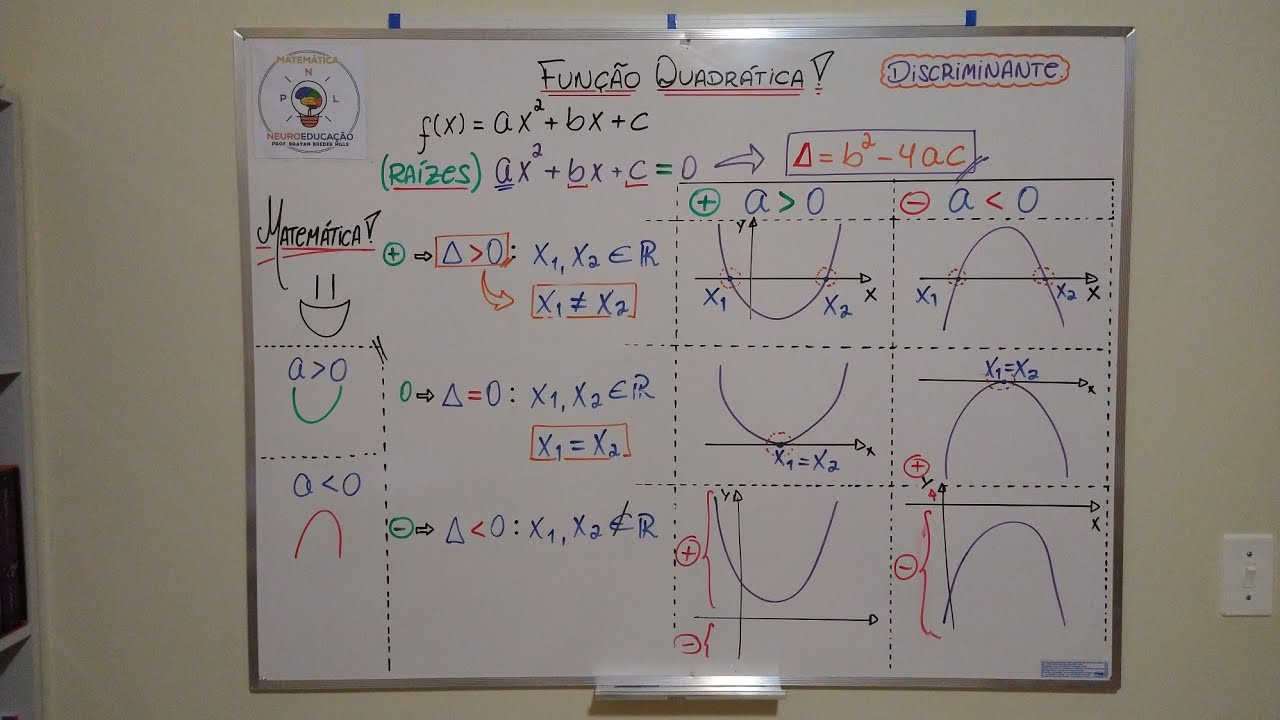 MATEMÁTICA
N
P L
NEUROEDUCAÇÃO
PROF. BRAYAN BREDER HILLS
FUNÇÃO QUADRÁTICA!
DISCRIMINANTE.
f(x) = ax² + bx + c
(RAÍZES) ax² + bx + c = 0 ⇒ Δ = b² - 4ac
MATEMÁTICA!
a > 0
a < 0
⊕ ⇒ Δ > 0 : X₁, X₂ ∈ ℝ
X₁ ≠ X₂
0 ⇒ Δ = 0 : X₁, X₂ ∈ ℝ
X₁ = X₂
⊖ ⇒ Δ < 0 : X₁, X₂ ∉ ℝ
⊕ a > 0
⊖ a < 0
Y
X₁ X₂ X
X₁ X₂ X
X₁ = X₂ X
X₁ = X₂ X
Y
⊕
⊖
⊕
Y
X
⊖